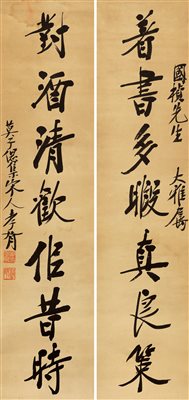 國禎先生 大雅屬
著書多暇真良策
對酒清歡佀昔時
莫子偲集宋人孝胥